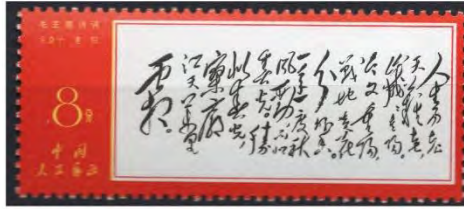 毛主席诗词
8分
中国
人民邮政
人生易老
天难老
岁岁重阳
今又重阳
战地黄花
分外香
一年一度秋
风劲不似
春光胜
似春光
寥廓
江天万里
霜